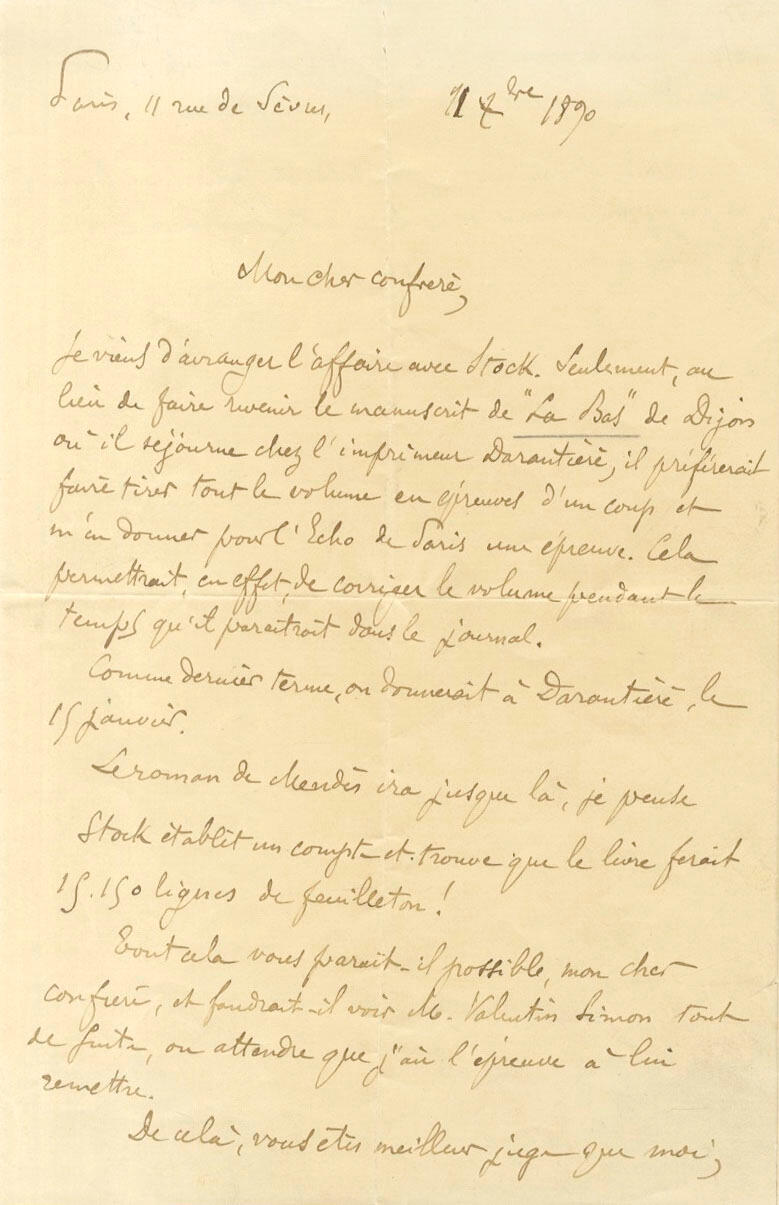 Paris, 11 rue de Sèvres,
Xbre 1890
Mon cher confrère,
Je viens d'arranger l'affaire avec Stock. Seulement, au
lieu de faire revenir le manuscrit de "Là Bas" de Dijon
où il séjourne chez l'imprimeur Darantière, il préférerait
faire tirer tout le volume en épreuves d'un coup et
m'en donner pour l'Echo de Paris une épreuve. Cela
permettrait, en effet, de corriger le volume pendant le
temps qu'il paraîtrait dans le journal.
Comme dernier terme, on donnerait à Darantière, le
15 janvier.
Le roman de Mendès ira jusque là, je pense
Stock établit un compte et trouve que le livre ferait
15.150 lignes de feuilleton!
Tout cela vous paraît-il possible, mon cher
confrère, et faudrait-il voir M. Valentin Simon tout
de suite, ou attendre que j'aie l'épreuve à lui
remettre.
De cela, vous êtes meilleur juge que moi,